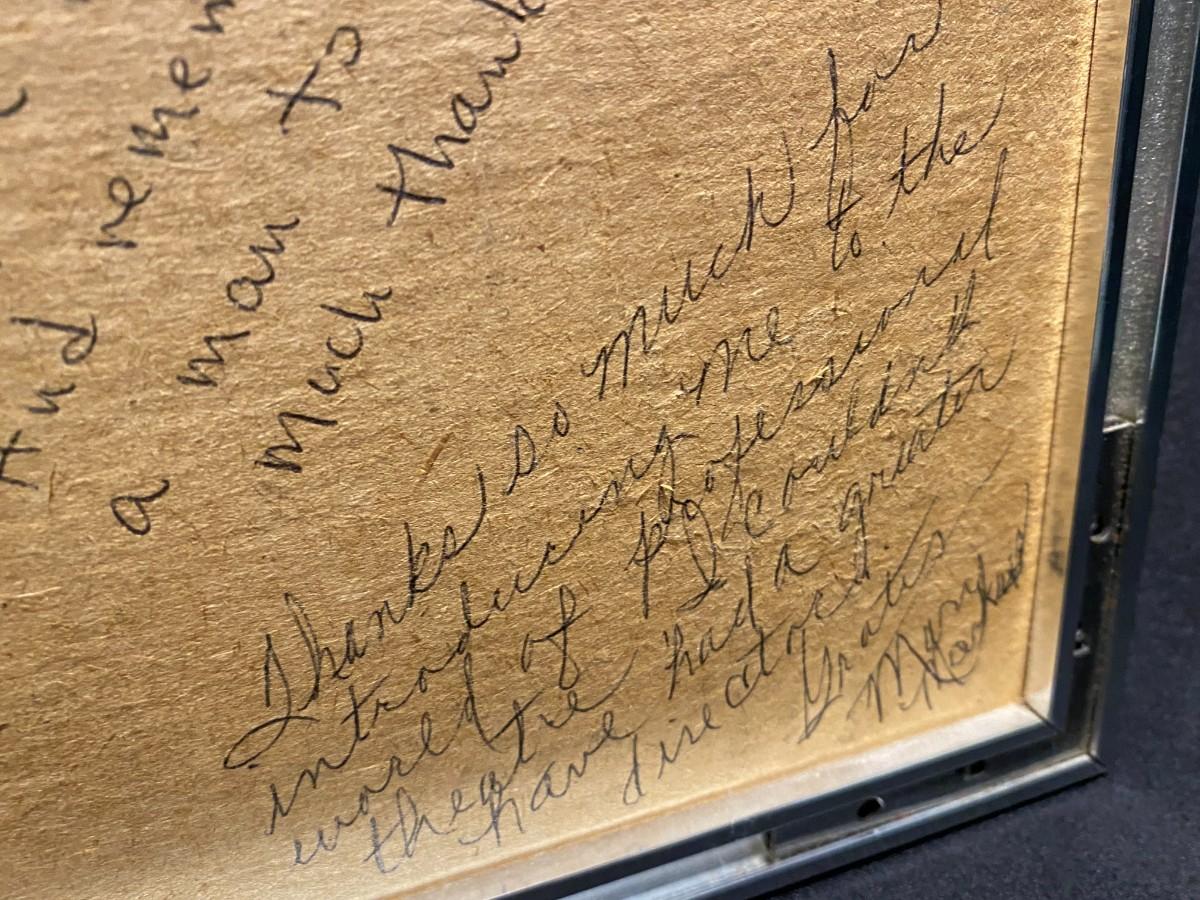 And remem
a man to
much thank
Thanks so much for
introducing me to the
world of professional
theatre I couldn't
have had a greater
director.
Mary